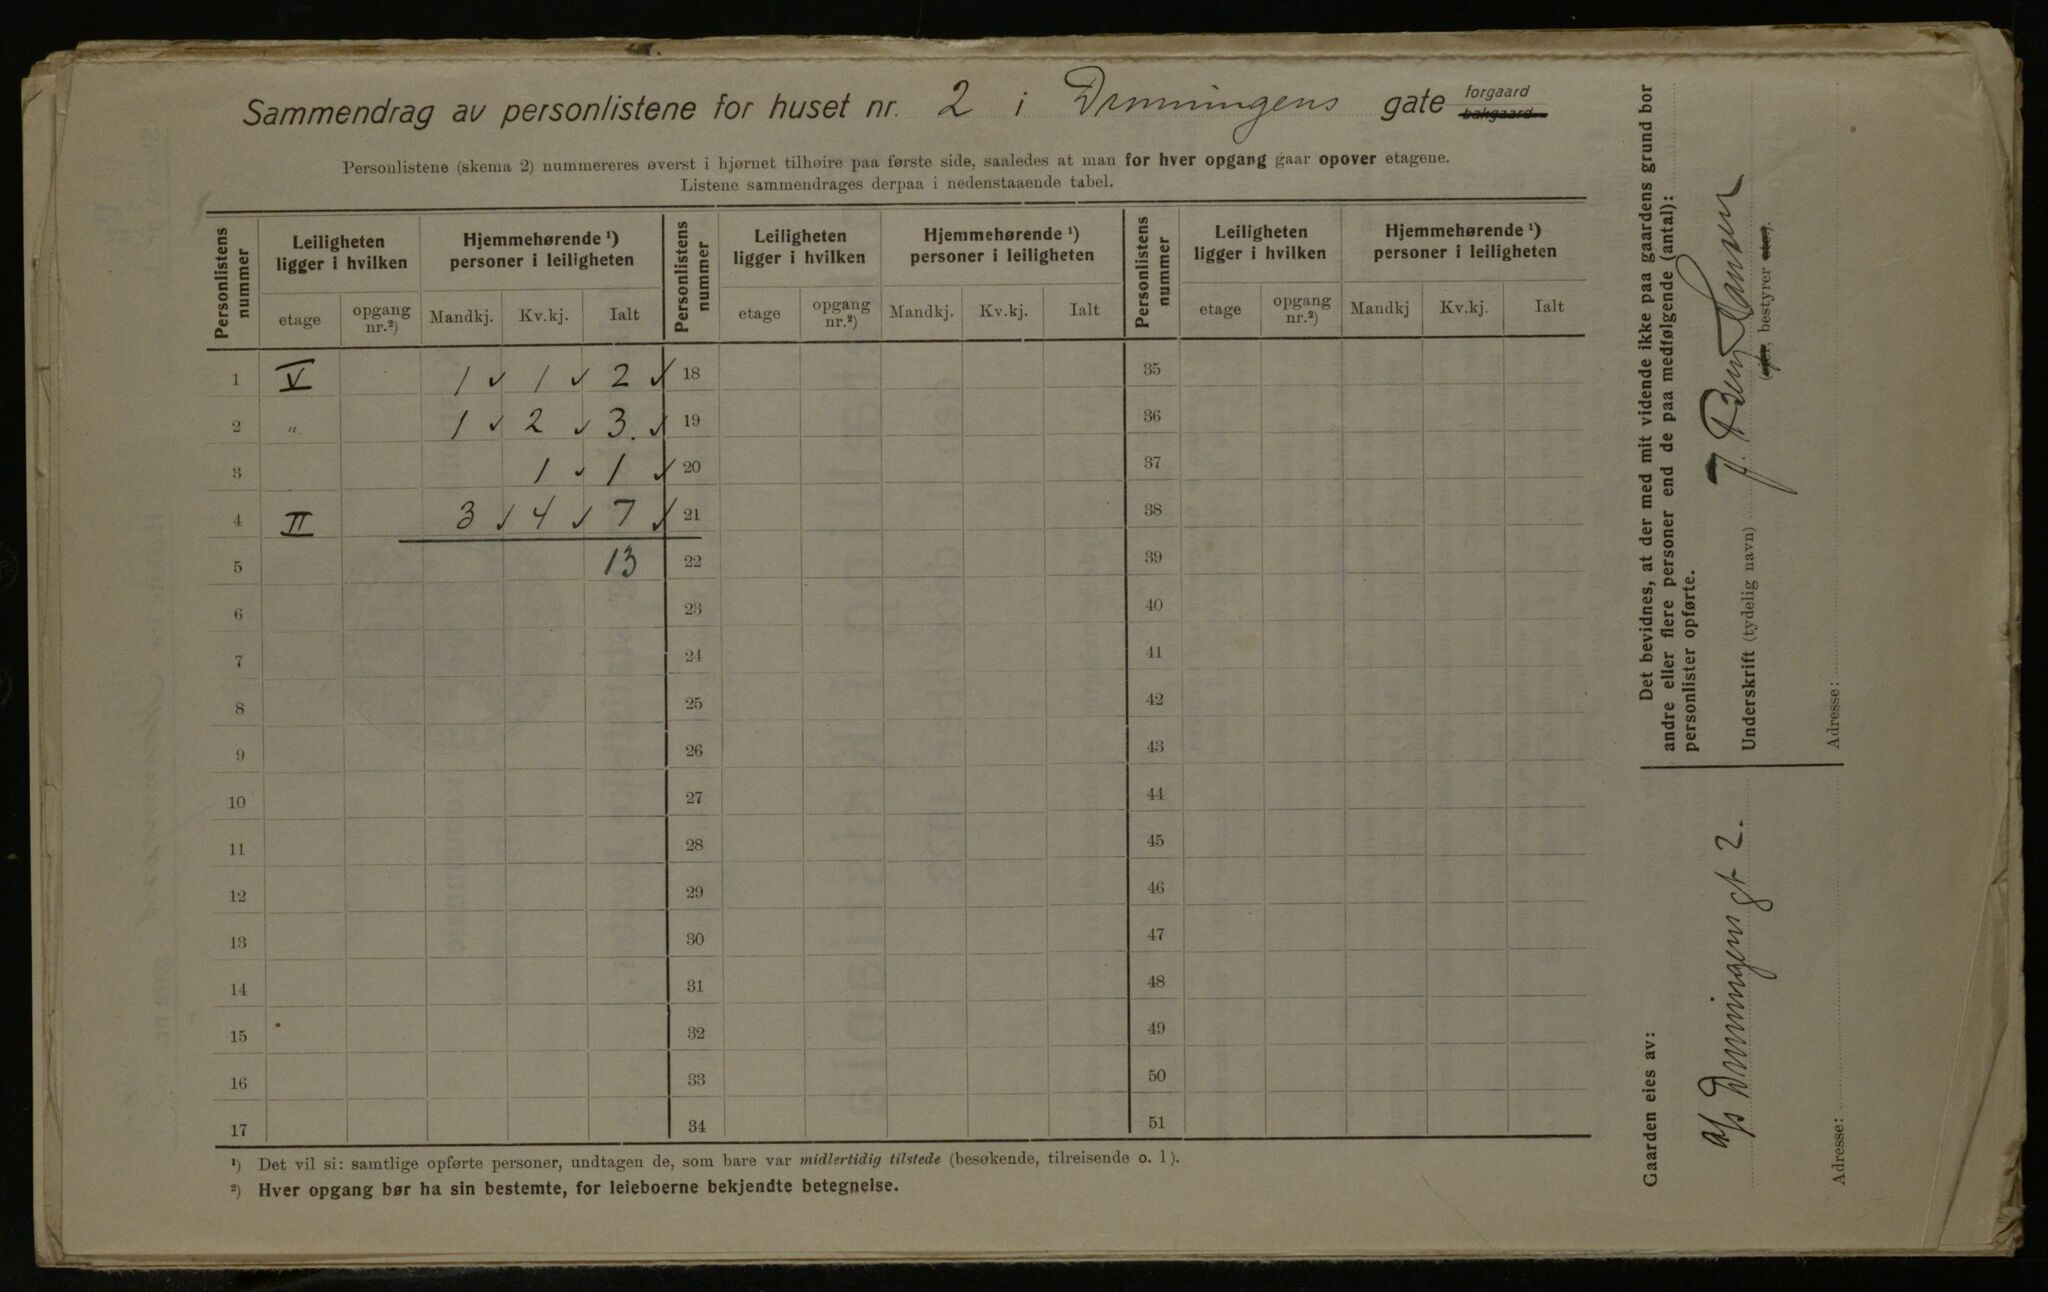 Sammendrag av personlistene for huset nr. 2 i Dronningens gate forgaard bakgaard
Personlistene (skema 2) nummereres øverst i hjørnet tilhøire paa første side, saaledes at man for hver opgang gaar opover etagene.
Listene sammendrages derpaa i nedenstaaende tabel.
Personlistens nummer
Leiligheten ligger i hvilken
Hjemmehørende ¹) personer i leiligheten
Personlistens nummer
Leiligheten ligger i hvilken
Hjemmehørende ¹) personer i leiligheten
Personlistens nummer
Leiligheten ligger i hvilken
Hjemmehørende ¹) personer i leiligheten
etage opgang nr.²) Mandkj. Kv.kj. Ialt etage opgang nr.²) Mandkj. Kv.kj. Ialt etage opgang nr.²) Mandkj Kv.kj. Ialt
1 V 1 ✓ 1 ✓ 2 ✓ 18 35
2 „ 1 ✓ 2 ✓ 3. ✓ 19 36
3 1 ✓ 1 ✓ 20 37
4 II 3 ✓ 4 ✓ 7 ✓ 21 38
5 13 22 39
6 23 40
7 24 41
8 25 42
9 26 43
10 27 44
11 28 45
12 29 46
13 30 47
14 31 48
15 32 49
16 33 50
17 34 51
¹) Det vil si: samtlige opførte personer, undtagen de, som bare var midlertidig tilstede (besøkende, tilreisende o. l).
²) Hver opgang bør ha sin bestemte, for leieboerne bekjendte betegnelse.
Det bevidnes, at der med mit vidende ikke paa gaardens grund bor
andre eller flere personer end de paa medfølgende (antal):
personlister opførte.
Underskrift (tydelig navn) Hansen
(eier, bestyrer etc.).
Adresse:
Gaarden eies av:
A/S Dronningens gt 2.
Adresse: